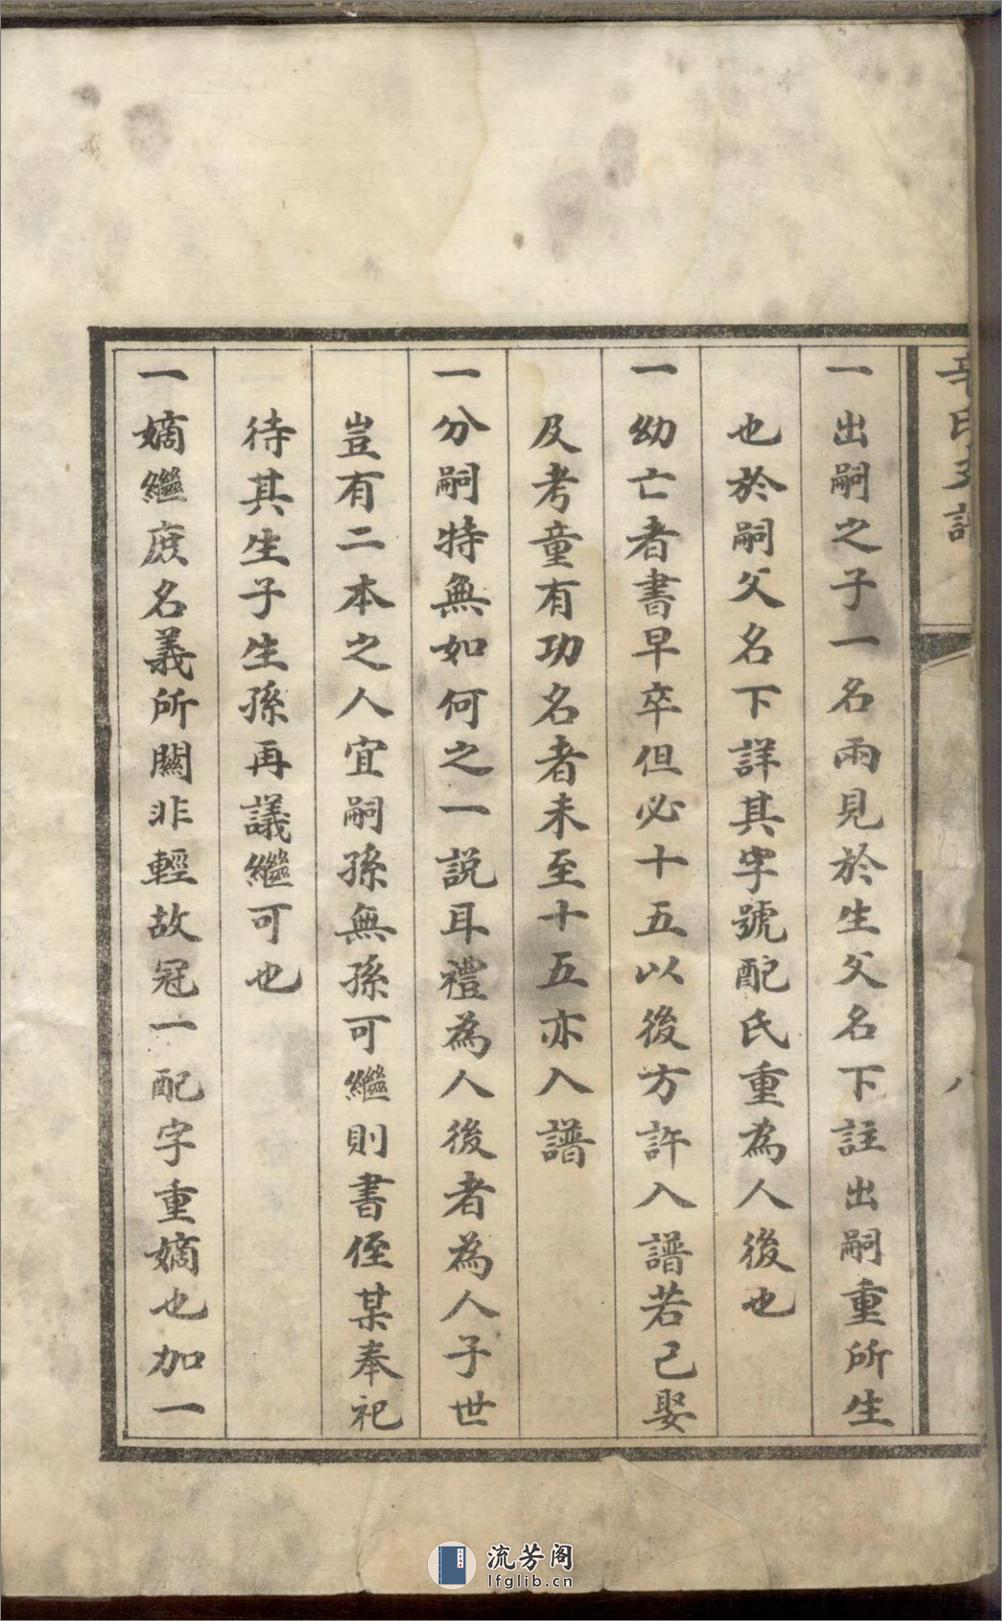 辛氏支譜
八
一出嗣之子一名兩見於生父名下註出嗣重所生
也於嗣父名下詳其字號配氏重為人後也
一幼亡者書早卒但必十五以後方許入譜若已娶
及考童有功名者未至十五亦入譜
一分嗣特無如何之一說耳禮為人後者為人子世
豈有二本之人宜嗣孫無孫可繼則書侄某奉祀
待其生子生孫再議繼可也
一嫡繼庶名義所關非輕故冠一配字重嫡也加一
流芳阁
lfglib.cn